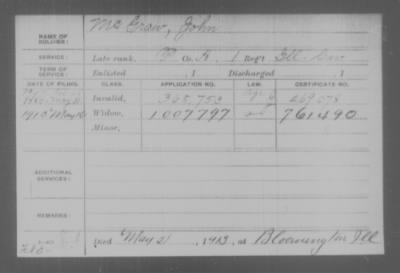 NAME OF SOLDIER: Mc Graw, John
SERVICE: Late rank, P Co. K, 1 Reg't Ill. Cav
TERM OF SERVICE: Enlisted , 1 Discharged , 1
DATE OF FILING. CLASS. APPLICATION NO. LAW. CERTIFICATE NO.
1880 Invalid, 365,753
1913 May Widow, 1007797 761490
Minor,
ADDITIONAL SERVICES:
REMARKS:
Died May 21, 1913, at Bloomington Ill